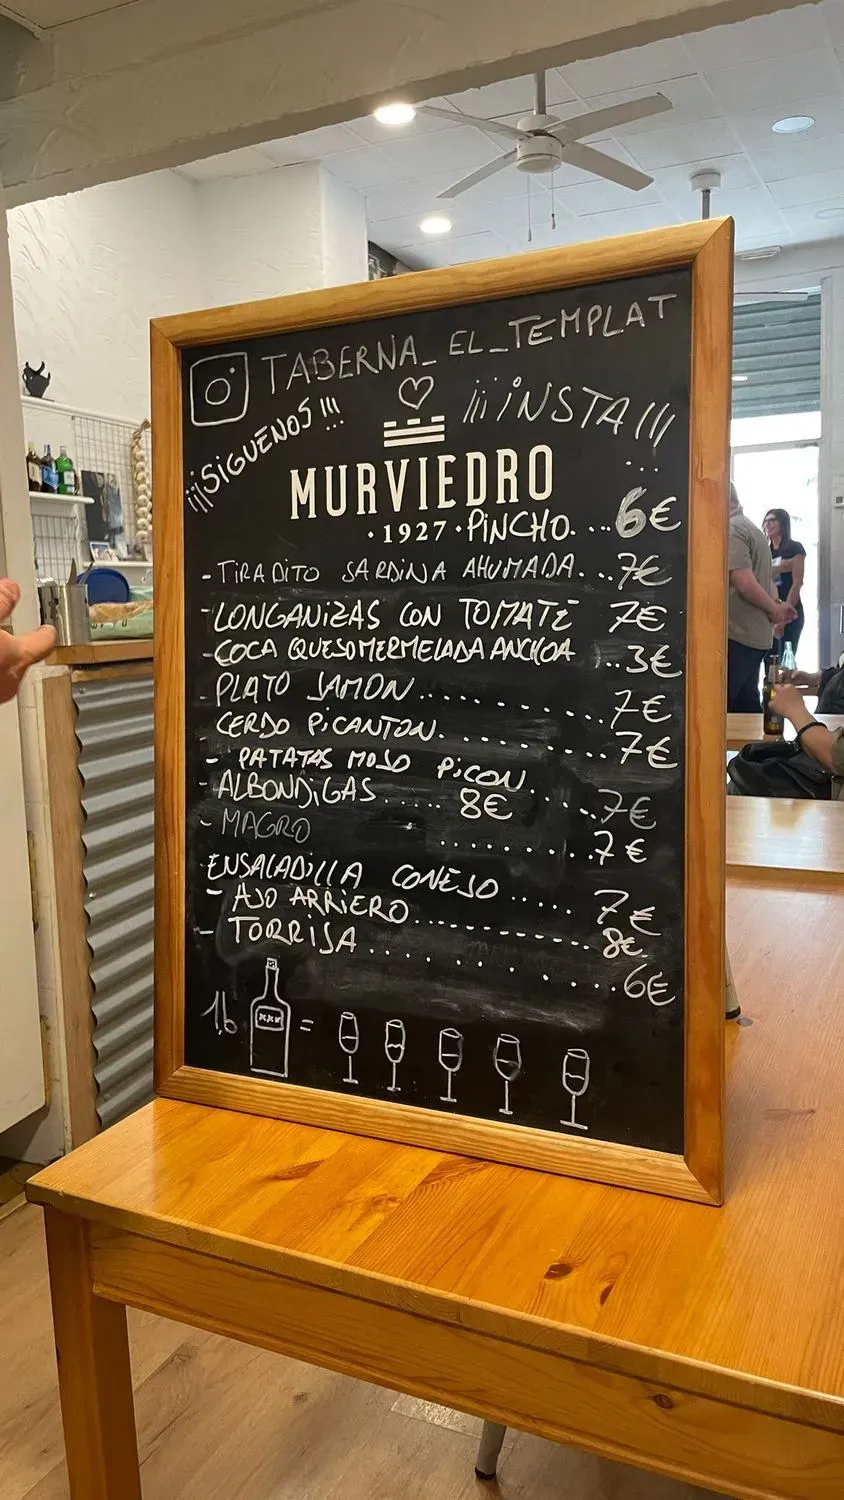 TABERNA_EL_TEMPLAT
¡¡¡SIGUENOS!!! ¡¡¡INSTA!!!
MURVIEDRO
·1927·
PINCHO. ... 6€
- TIRADITO SARDINA AHUMADA... 7€
- LONGANIZAS CON TOMATE 7€
- COCA QUESO MERMELADA ANCHOA ..3€
- PLATO JAMON........... 7€
CERDO PICANTON............ 7€
- PATATAS MOJO PICON ...... 7€
- ALBONDIGAS..... 8€
- MAGRO .......... 7€
ENSALADILLA CONEJO ..... 7€
- AJO ARRIERO............. 8€
- TORRIJA ............ 6€
16
xxx =